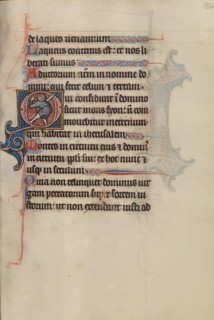 de laqueo uenantium
Laqueus contritus est: et nos li
berati sumus
Adiutorium nrm in nomine do
mini: qui fecit celum et terram.
Qui confidunt in domino
sicut mons syon: non
mouebitur in eternum
qui habitat in iherusalem
Montes in circuitu eius et domin
in circuitu ppli sui: ex hoc nunc et
usqz in seculum
Quia non relinquet dominus uir
gam peccatorum super sortem iu
storum: ut non extendant iusti ad